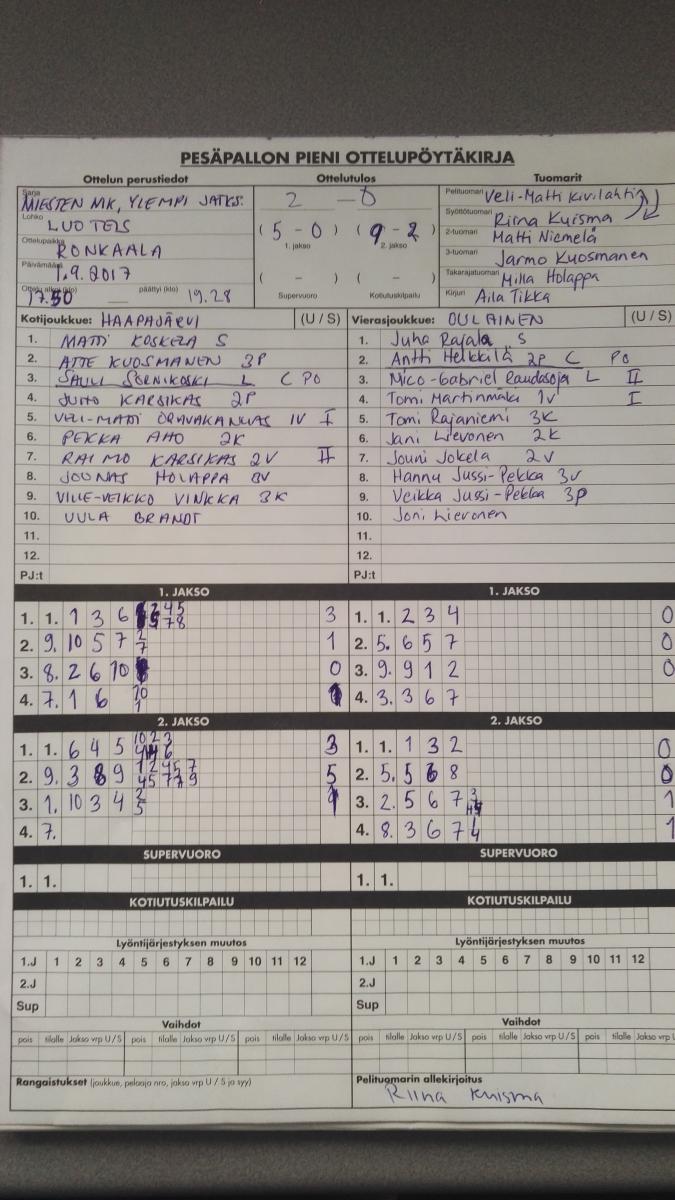 PESÄPALLON PIENI OTTELUPÖYTÄKIRJA
Ottelun perustiedot Ottelutulos Tuomarit
Sarja MIESTEN MK, YLEMPI JATKS:
Lohko LUOTEIS
Ottelupaikka RONKAALA
Päivämäärä 1.9.2017
Ottelu alkoi (klo) 17.50 — päättyi (klo) 19.28
2 — 0
( 5 - 0 ) ( 9 - 2 )
1. jakso 2. jakso
( - ) ( - )
Supervuoro Kotiutuskilpailu
Pelituomari Veli-Matti Kivilahti
Syöttötuomari Riina Kuisma
2-tuomari Matti Niemelä
3-tuomari Jarmo Kuosmanen
Takarajatuomari Milla Holappa
Kirjuri Aila Tikka
Kotijoukkue: HAAPAJÄRVI (U / S)
1. MATTI KOSKELA S
2. ATTE KUOSMANEN 3P
3. SAULI SORNIKOSKI L C PO
4. JUHO KARSIKAS 2P
5. VELI-MATTI ORAVAKANGAS 1V I
6. PEKKA AHO 2K
7. RAIMO KARSIKAS 2V II
8. JOONAS HOLAPPA 3V
9. VILLE-VEIKKO VINKKA 3K
10. UULA BRANDT
11.
12.
PJ:t
Vierasjoukkue: OULAINEN (U / S)
1. Juha Rajala S
2. Antti Helkkilä 2P C PO
3. Mico-Gabriel Raudasoja L II
4. Tomi Martinmäki 1V I
5. Tomi Rajaniemi 3K
6. Jani Lievonen 2K
7. Jouni Jokela 2V
8. Hannu Jussi-Pekka 3V
9. Veikka Jussi-Pekka 3P
10. Joni Lievonen
11.
12.
PJ:t
1. JAKSO
1. 1. 1 3 6 3
2. 9. 10 5 7 2 7 1
3. 8. 2 6 10 0
4. 7. 1 6 10 1
1. JAKSO
1. 1. 2 3 4 0
2. 5. 6 5 7 0
3. 9. 9 1 2 0
4. 3. 3 6 7
2. JAKSO
1. 1. 6 4 5 10 2 3 3
2. 9. 3 8 9 1 2 4 5 7 5
3. 1. 10 3 4 2 5 1
4. 7.
2. JAKSO
1. 1. 1 3 2 0
2. 5. 5 6 8 0
3. 2. 5 6 7 1
4. 8. 3 6 7 1
SUPERVUORO
1. 1.
SUPERVUORO
1. 1.
KOTIUTUSKILPAILU
KOTIUTUSKILPAILU
Lyöntijärjestyksen muutos
1.J 1 2 3 4 5 6 7 8 9 10 11 12
2.J
Sup
Lyöntijärjestyksen muutos
1.J 1 2 3 4 5 6 7 8 9 10 11 12
2.J
Sup
Vaihdot
pois tilalle Jakso vrp U/S pois tilalle Jakso vrp U/S pois tilalle Jakso vrp U/S
Vaihdot
pois tilalle Jakso vrp U/S pois tilalle Jakso vrp U/S pois tilalle Jakso vrp U
Rangaistukset (joukkue, pelaaja nro, jakso vrp U / S ja syy)
Pelituomarin allekirjoitus
Riina Kuisma